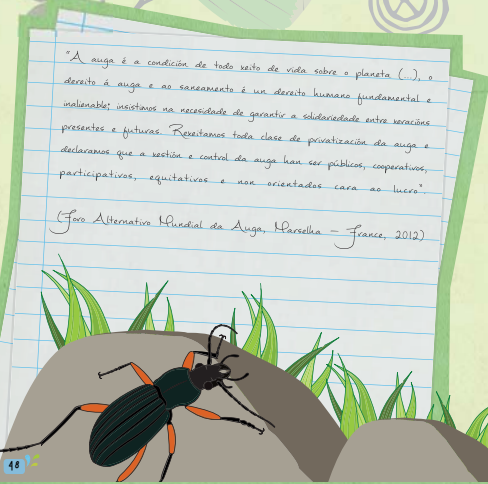 "A auga é a condición de todo xeito de vida sobre o planeta (...), o
dereito á auga e ao saneamento é un dereito humano fundamental e
inalienable; insistimos na necesidade de garantir a solidariedade entre xeracións
presentes e futuras. Rexeitamos toda clase de privatización da auga e
declaramos que a xestión e control da auga han ser públicos, cooperativos,
participativos, equitativos e non orientados cara ao lucro".
(Foro Alternativo Mundial da Auga, Marselha – France, 2012)
48